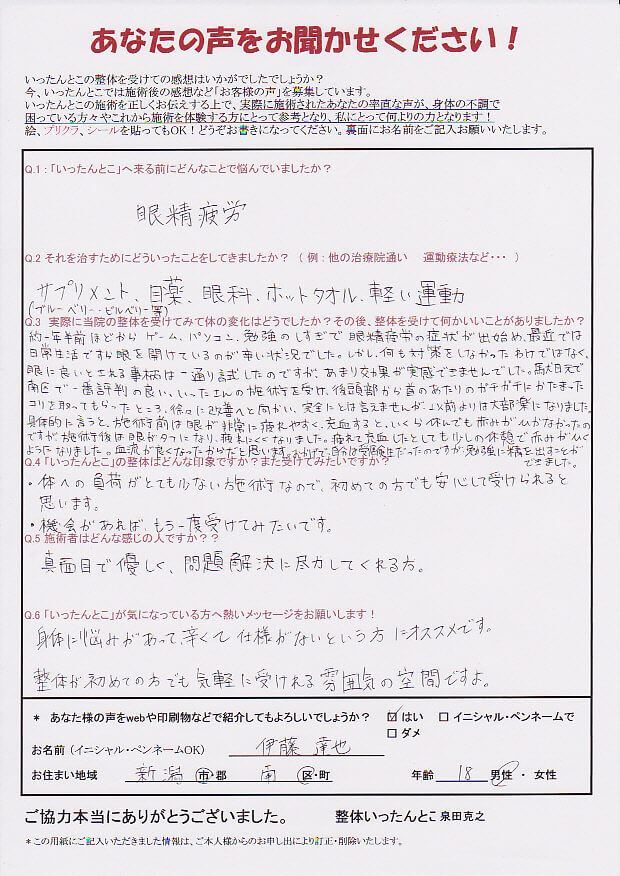 あなたの声をお聞かせください！
いったんとこの整体を受けての感想はいかがでしたでしょうか？
今、いったんとこでは施術後の感想など「お客様の声」を募集しています。
いったんとこの施術を正しくお伝えする上で、実際に施術されたあなたの率直な声が、身体の不調で
困っている方々やこれから施術を体験する方にとって参考となり、私にとって何よりの力となります！
絵、プリクラ、シールを貼ってもOK！どうぞお書きになってください。裏面にお名前をご記入お願いいたします。
Q.1：「いったんとこ」へ来る前にどんなことで悩んでいましたか？
眼精疲労
Q.2 それを治すためにどういったことをしてきましたか？（例：他の治療院通い　運動療法など・・・）
サプリメント、目薬、眼科、ホットタオル、軽い運動
(ブルーベリー・ビルベリー等)
Q.3 実際に当院の整体を受けてみて体の変化はどうでしたか？その後、整体を受けて何かいいことがありましたか？
約一年半前ほどからゲーム、パソコン、勉強のしすぎで眼精疲労の症状が出始め、最近では
日常生活ですら眼を開けているのが辛い状況でした。しかし、何も対策をしなかったわけではなく、
眼に良いとされる事柄は一通り試したのですが、あまり効果が実感できませんでした。
南区で一番評判の良い、いったんの施術を受け、後頭部から首のあたりのガチガチにかたまった
コリを取ってもらったところ、徐々に改善へと向かい、完全にとは言えませんが、以前よりは大部楽になりました。
具体的に言うと、施術前は眼が非常に疲れやすく、充血すると、いくら休んでも赤みがひかなかったの
ですが、施術後は眼が楽になり、疲れにくくなりました。疲れて充血したとしても少しの休憩で赤みがひく
ようになりました。血流が良くなったからだと思います。おかげで、自分は受験生だったのですが、勉強に精を出すことが
できました。
Q.4「いったんとこ」の整体はどんな印象ですか？また受けてみたいですか？
・体への負荷がとても少ない施術なので、初めての方でも安心して受けられると
思います。
・機会があれば、もう一度受けてみたいです。
Q.5 施術者はどんな感じの人ですか？？
真面目で優しく、問題解決に尽力してくれる方。
Q.6「いったんとこ」が気になっている方へ熱いメッセージをお願いします！
身体に悩みがあって、辛くて仕様がないという方にオススメです。
整体が初めての方でも気軽に受けれる雰囲気の空間ですよ。
＊ あなた様の声をwebや印刷物などで紹介してもよろしいでしょうか？ ☑はい □イニシャル・ペンネームで
□ダメ
お名前（イニシャル・ペンネームOK） 伊藤 達也
お住まい地域 新潟 市・郡 南 区・町 年齢 18 男性・女性
ご協力本当にありがとうございました。 整体いったんとこ 泉田克之
＊この用紙にご記入いただきました情報は、ご本人様からのお申し出により訂正・削除いたします。